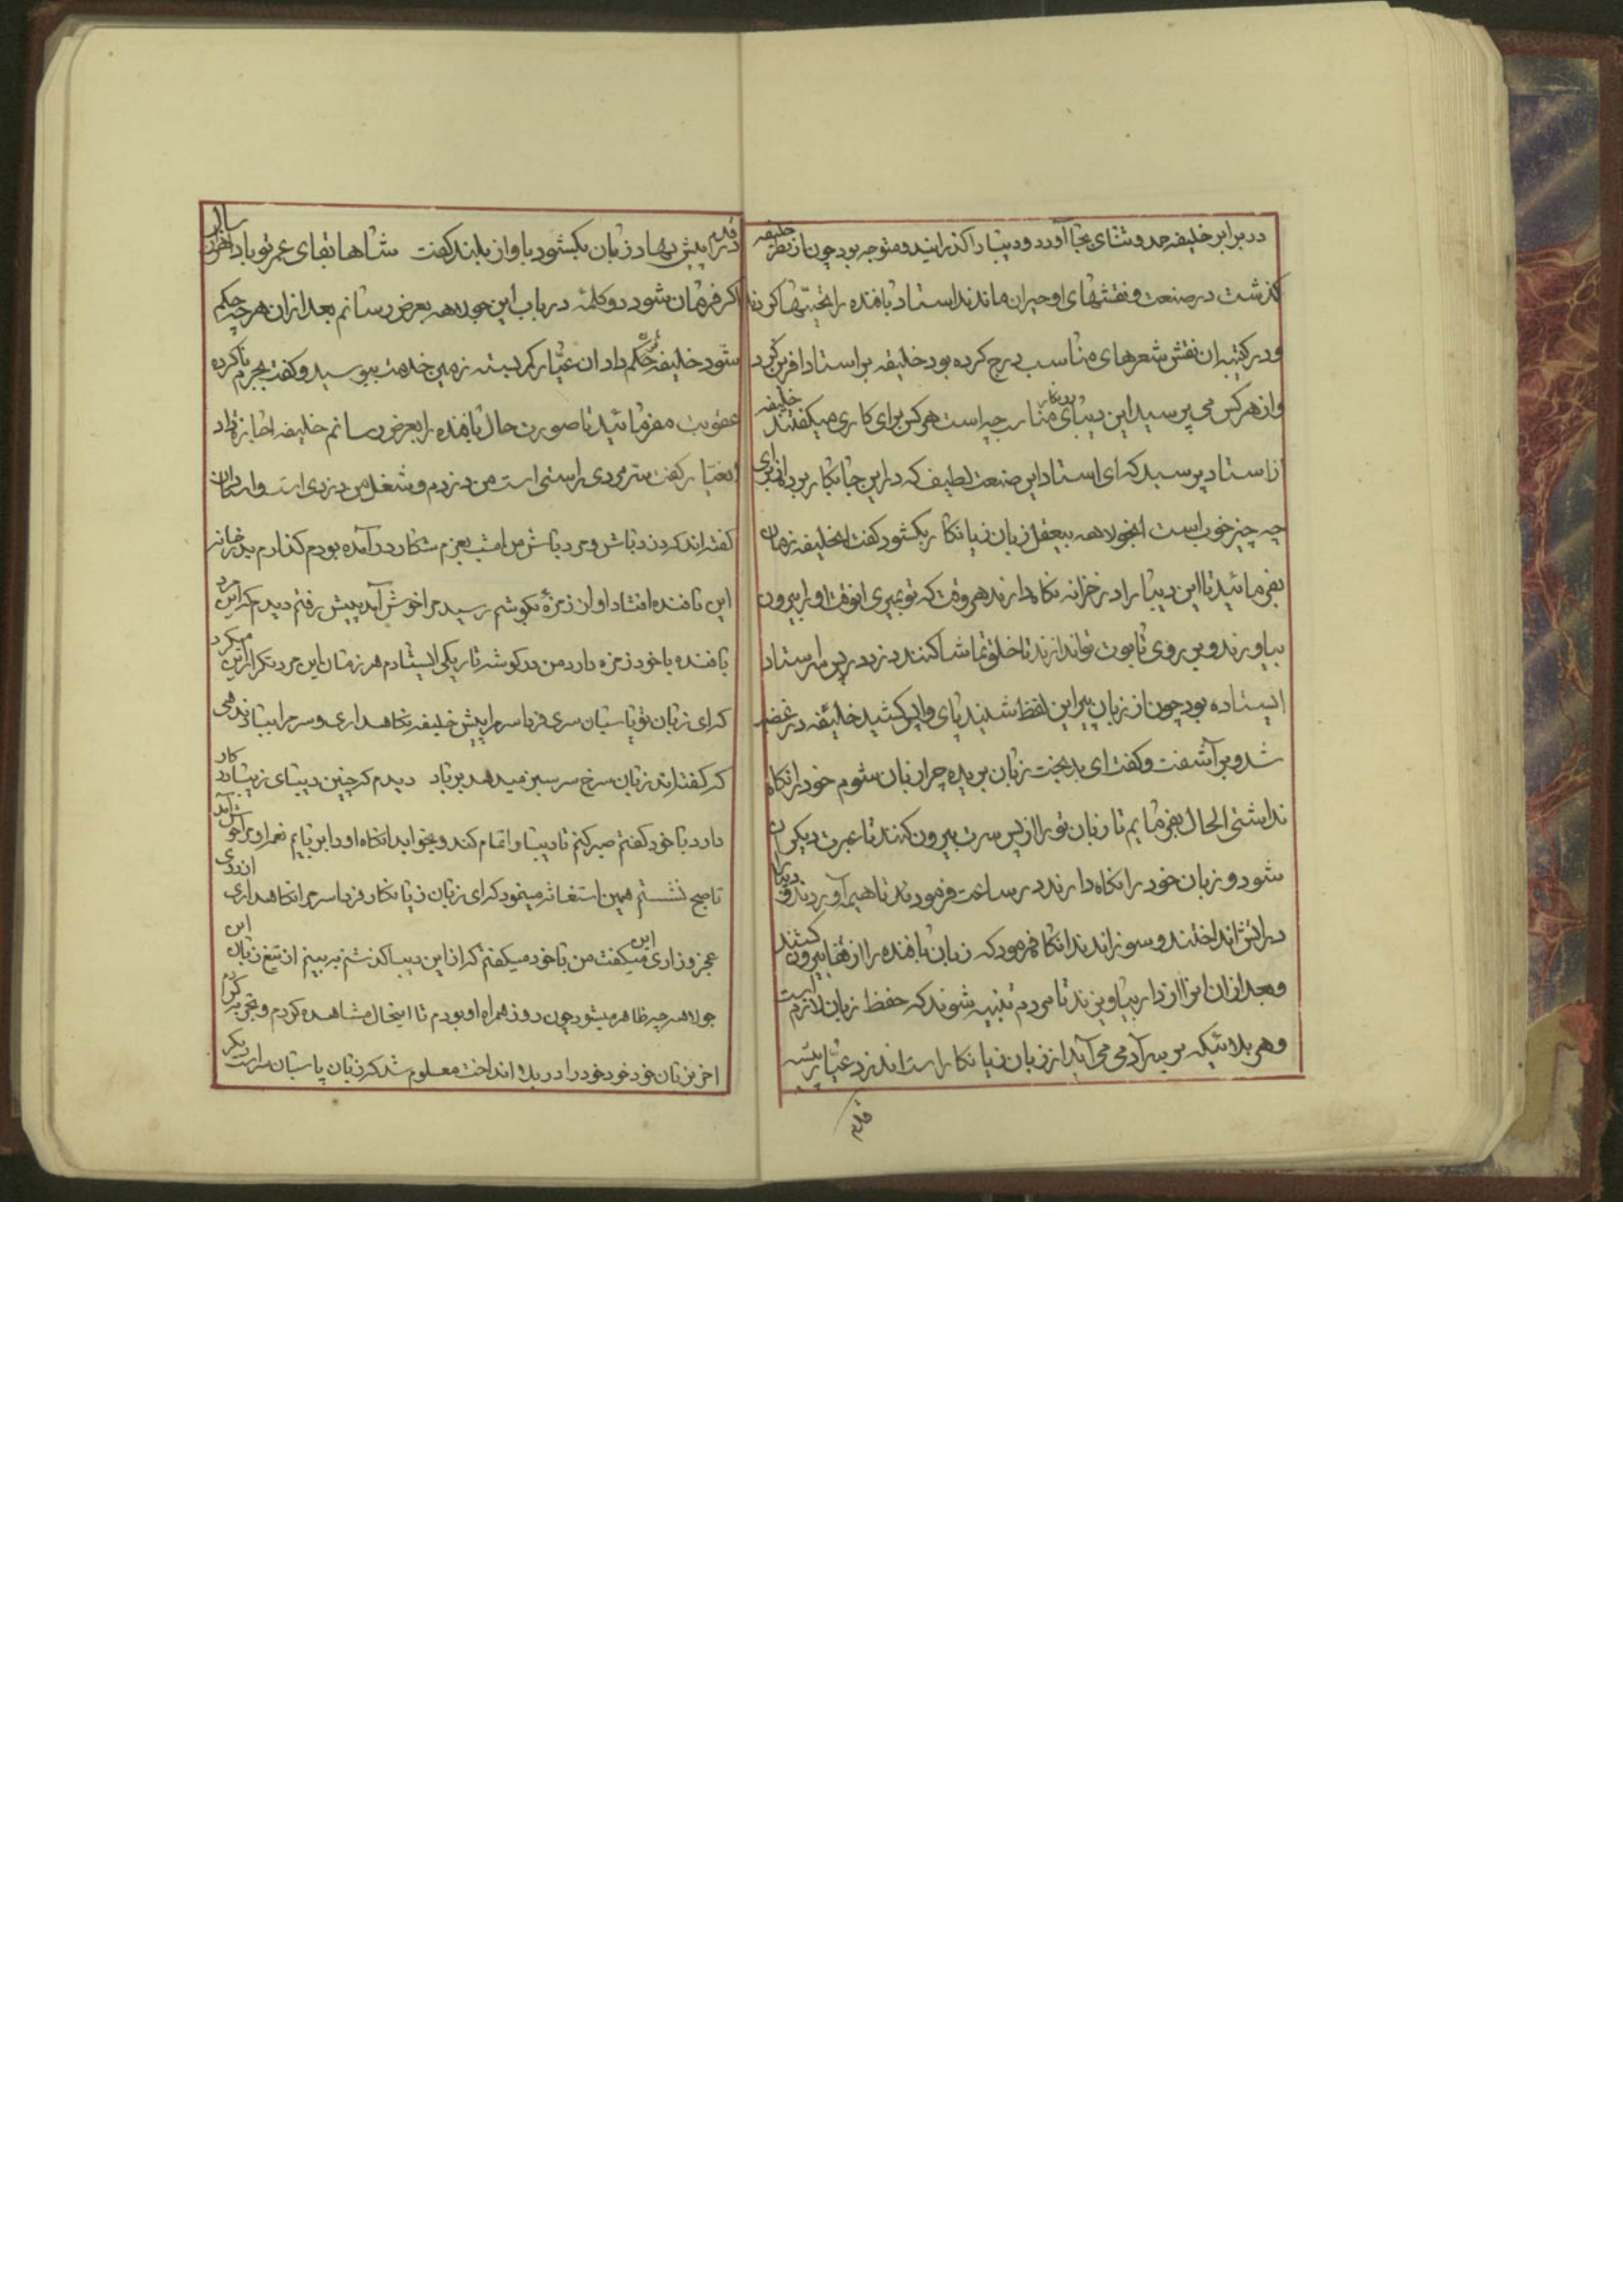 در برابر خلیفه حد و ثنای بجا آورد و دیبا را کذرانید و متوجه بود چون از نظر خلیفه
کذشت در صنعت و نقشهای او حیران ماندند استاد بافنده را تحیتها کردند
و در کتیبه ان نقش شعرهای مناسب درج کرده بود خلیفه بر استاد افرین کرد
و از هر کس می پرسید این دیبای مناسب چه است هر کس برای کاری میکفتند خلیفه
از استاد پرسید که ای استاد این صنعت لطیف که در این جا بکار برده از برای
چه چیز خوب است انجولاهه بیعقل زبان زیانکار بکشود کفت ایخلیفه زمان
بفرمائید تا این دیبا را در خزانه نکاه دارند هر وقت که تو بمیری انوقت او را بیرون
بیاورند و بر روی تابوت تو اندازند تا خلق تماشا کنند دزد در پس سر استاد
ایستاده بود چون از زبان پیر این لفظ شنیند پای واپس کشید خلیفه در غضب
شد و بر آشفت و کفت ای بدبخت زبان بریده چرا زبان شوم خود را نکاه
نداشتی الحال بفرمایم تا زبان تو را از پس سرت بیرون کنند تا عبرت دیکران
شود و زبان خود را نکاه دارند در ساعت فرمودند تا هیمه آوردند و دیبا را
در اتش انداختند و سوزاندند انکا فرمود که زبان بافنده را از قفا بیرون کشند
و بعد از ان او را از دار بیاویزند تا مردم تنبیه شوند که حفظ زبان لازم است
و هر بلائیکه بر سر آدمی می آید از زبان زیانکار است اندزد عیار پیشه
قدم
قدم در پیش نهاد زبان بکشود باواز بلند کفت شاها بقای عمر تو باد هزار سال
اکر فرمان شود دو کلمه در باب این جولاهه بعرض رسانم بعد از ان هر چه حکم
شود خلیفه حکم داد ان عیار کمر بسته زمین خدمت ببوسید و کفت بجرم ناکرده
عقوبت مفرمائید تا صورت حال بافنده را بعرض رسانم خلیفه اجازه داد
انعیار کفت سر مردی راستی است من دزدم و شغل من دزدی است و استادان
کفته اند کردن دباش و مرد باش من امشب بعزم شکار در آمده بودم کذارم بدر خانه
این بافنده افتاد اوان زمزمه بکوشم رسید مرا خوش آمد پیش رفتم دیدم که این مرد
بافنده با خود زمزه دارد من در کوشه تاریکی ایستادم هر زمان این مرد تکرار این میکرد
که ای زبان تو پاسبان سری فردا سرم را پیش خلیفه نکاهداری و سر مرا بباد ندهی
که کفته اند زبان سرخ سر سبز میدهد بر باد دیدم که چنین دیبای زیبا در کار
دارد با خود کفتم صبر کنم تا دیبا را تمام کند و بخوابد انکاه او را بر بایم نعره او مرا خوش آمد
تا صبح نشستم همین استغاثه مینمود که ای زبان زیانکار فردا سر مرا نکاهداری از روی
عجز و زاری این میکفت من با خود میکفتم که از این دیبا کذشتم به بینم از تیغ زبان این
جولاهه چه ظاهر میشود چون روز همراه او بودم تا اینحال مشاهده کردم و تجربه کردم
اخر بزبان خود خود را در بلا انداخت معلوم شد که زبان پاسبان سر است دیکر